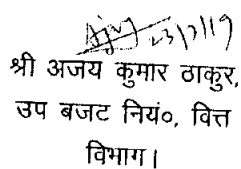 23/7/19
श्री अजय कुमार ठाकुर,
उप बजट नियं०, वित्त
विभाग।